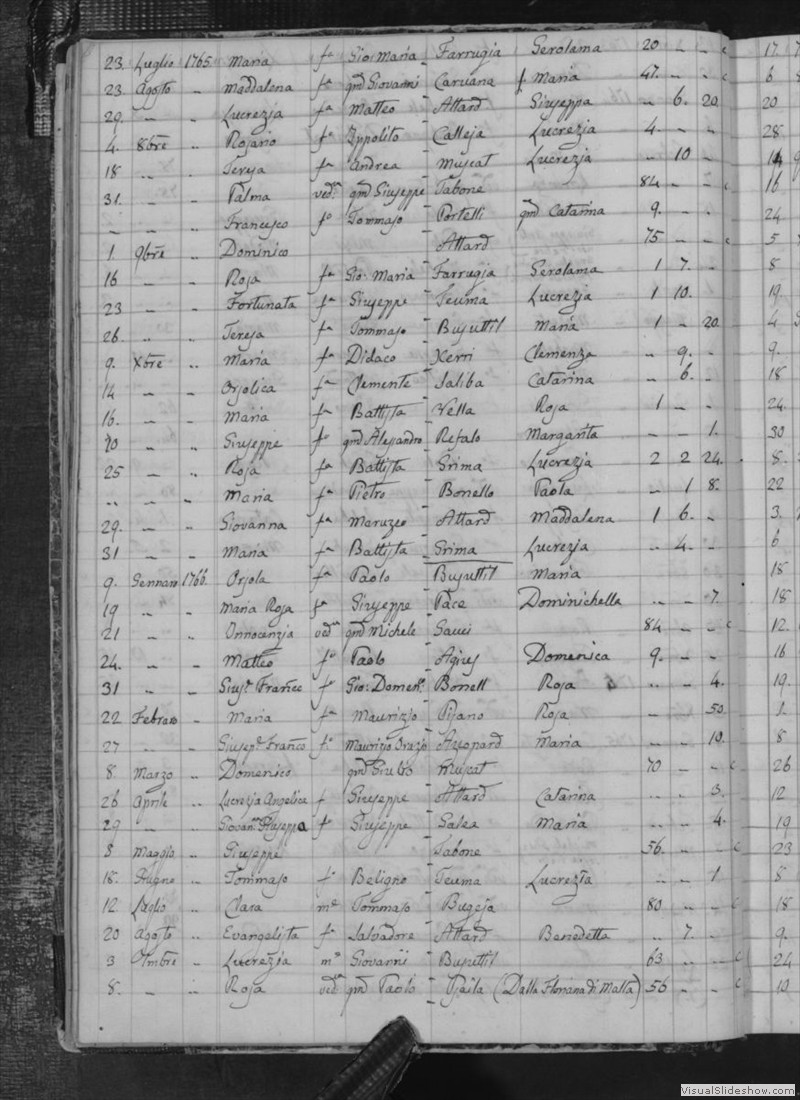 23. Luglio 1765. Maria fa Gio: Maria Farrugia Gerolama 20 - - c
23 Agosto .. Maddalena fa qm Giovanni Caruana f Maria 47. - - c
29. - .. Lucrezia fa Matteo Attard Giuseppa - 6. 20.
4. 8bre .. Rosario fo Ippolito Calleja Lucrezia 4. - -
18 .. .. Teresa fa Andrea Muscat Lucrezia - 10 -
31. .. .. Palma ved.a qm Giuseppe Tabone 84 - - c
- - .. Francesco fo Tommaso Portelli qm Catarina 9. - .
1. 9bre .. Dominico Attard 75 - - c
16 - .. Rosa fa Gio: Maria Farrugia Gerolama 1 7. -
23 - .. Fortunata fa Giuseppe Teuma Lucrezia 1 10. -
26. .. .. Teresa fa Tommaso Busuttil Maria 1 - 20.
9. Xbre .. Maria fa Didaco Xerri Clemenza - 9. -
14 - .. Orsolica fa Clemente Saliba Catarina - 6. -
16. - .. Maria fa Battista Vella Rosa 1 - -
20 - .. Giuseppe fo qm Alesandro Refalo Margarita - - 1.
25 - .. Rosa fa Battista Grima Lucrezia 2 2 24.
.. - .. Maria fa Pietro Bonello Paola - 1 8.
29. - .. Giovanna fa Maruzzo Attard Maddalena 1 6. -
31 - .. Maria fa Battista Grima Lucrezia .. 4. -
9. Gennaro 1766. Orsola fa Paolo Busuttil Maria
19 - .. Maria Rosa fa Giuseppe Pace Dominichella .. - 7.
21 - .. Onnocenzia ved.a qm Michele Sauci 84 - - c
24. - - Matteo fo Paolo Agius Domenica 9. - -
31 - .. Gius.e Franco fo Gio: Domen.o Bonett Rosa .. - 4.
22 Febraro - Maria fa Maurizio Pisano Rosa - 50.
27 - .. Giusep.e Franco fo Maurizio Azzopard Maria - - 10.
8. Marzo .. Domenico qm Muscat 70 - - c
26 Aprile .. Lucrezia Angelica f Giuseppe Attard Catarina .. - 3.
29 - .. Giovan.a Giuseppa f Giuseppe Galea Maria .. - 4.
8 Maggio .. Giuseppe Tabone 56. - - c
18. Giugno .. Tommaso fo Beligno Teuma Lucrezia .. - 1
12 Luglio .. Clara me Tommaso Bugeja 80 - - c
20 Agosto .. Evangelista fa Salvadore Attard Benedetta .. 7. -
3 .. Lucrezia me Giovanni Busuttil 63 .. - c
8. - .. Rosa ved.a qm Paolo Psaila (Dalla Floriana di Malta) 56 - - c
17
6
20
28
14
16
24
5
8
19
4
9.
18
24.
30
8.
22
3.
6
18
18
12
16
19.
1.
8
26
12
19
23
8
18
9.
24
10
VisualSlideshow.com